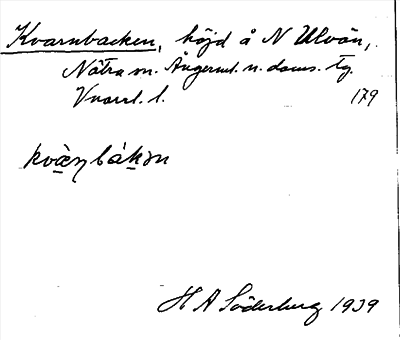 Kvarnbacken, höjd å N Ulvön,
Nätra sn. Ångerml. n. doms. tg.
Vnorrl. l. 179
kvà̱ŋbáḵən
H A Söderberg 1939